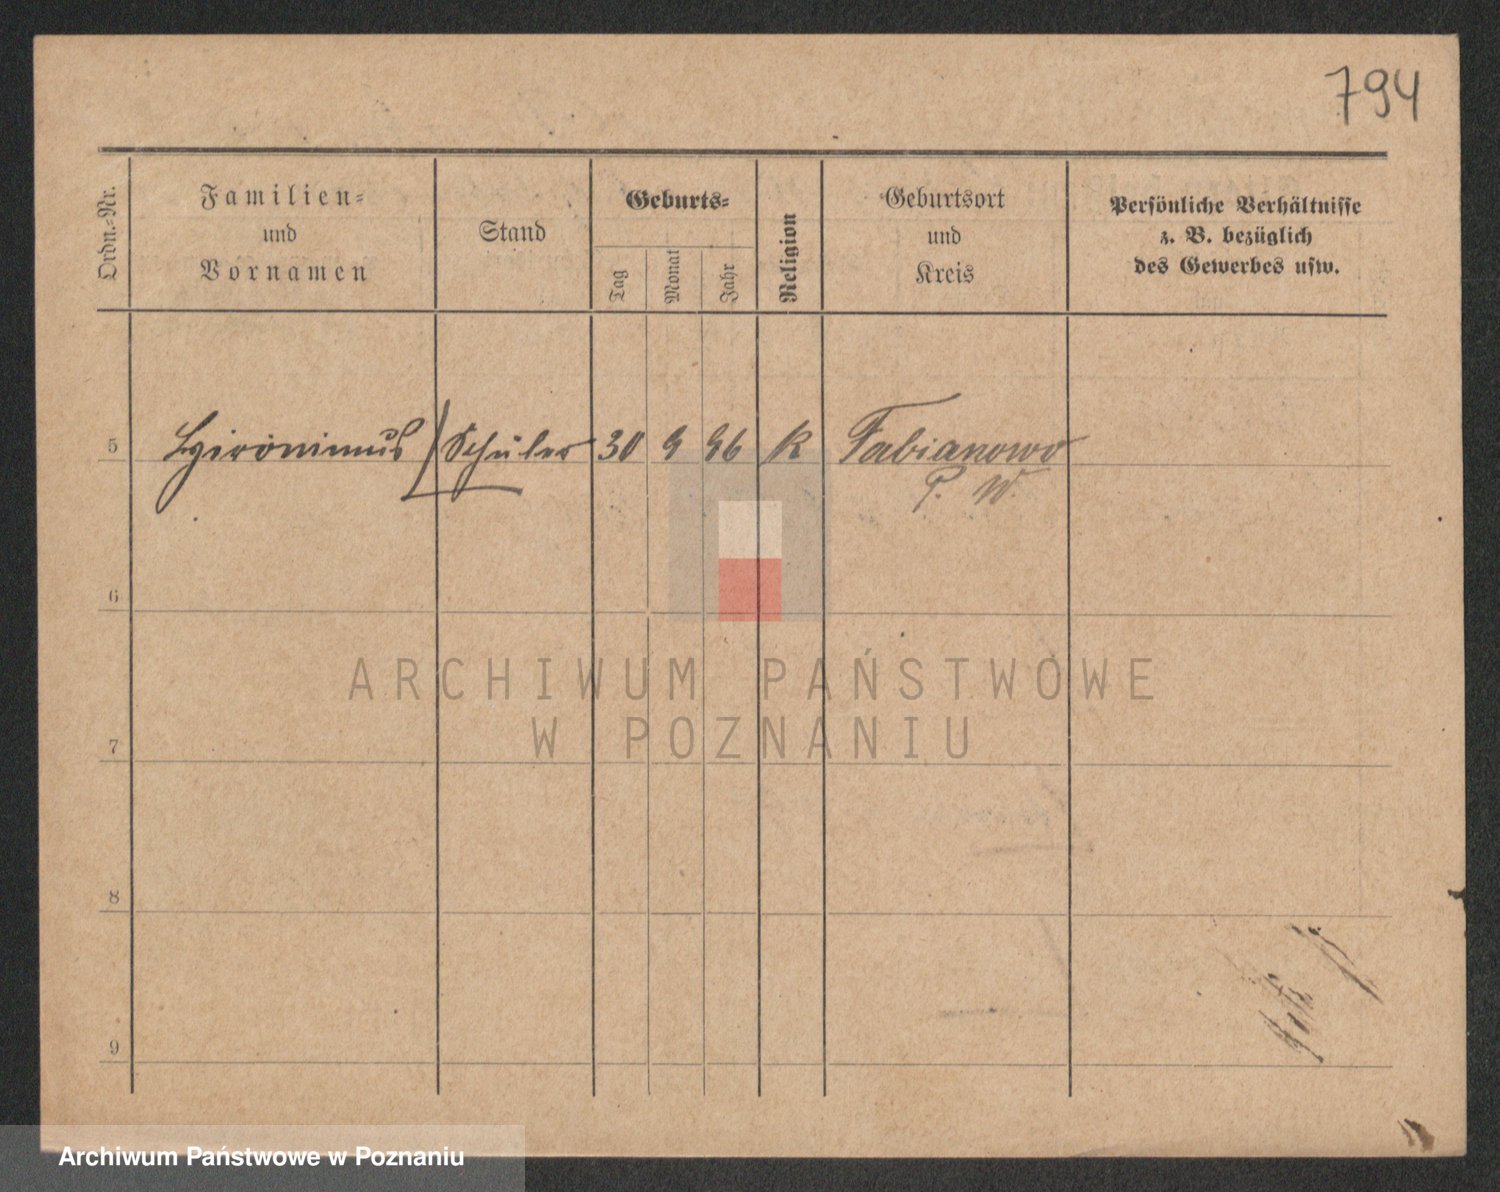 794
Ordn.-Nr.
Familien-
und
Vornamen
Stand
Geburts-
Tag
Monat
Jahr
Religion
Geburtsort
und
Kreis
Persönliche Verhältnisse
z. B. bezüglich
des Gewerbes usw.
5 Hironimus Schüler 30 9 96 K Fabianowo
P. W.
6
ARCHIWUM PAŃSTWOWE
W POZNANIU
7
8
9
Archiwum Państwowe w Poznaniu